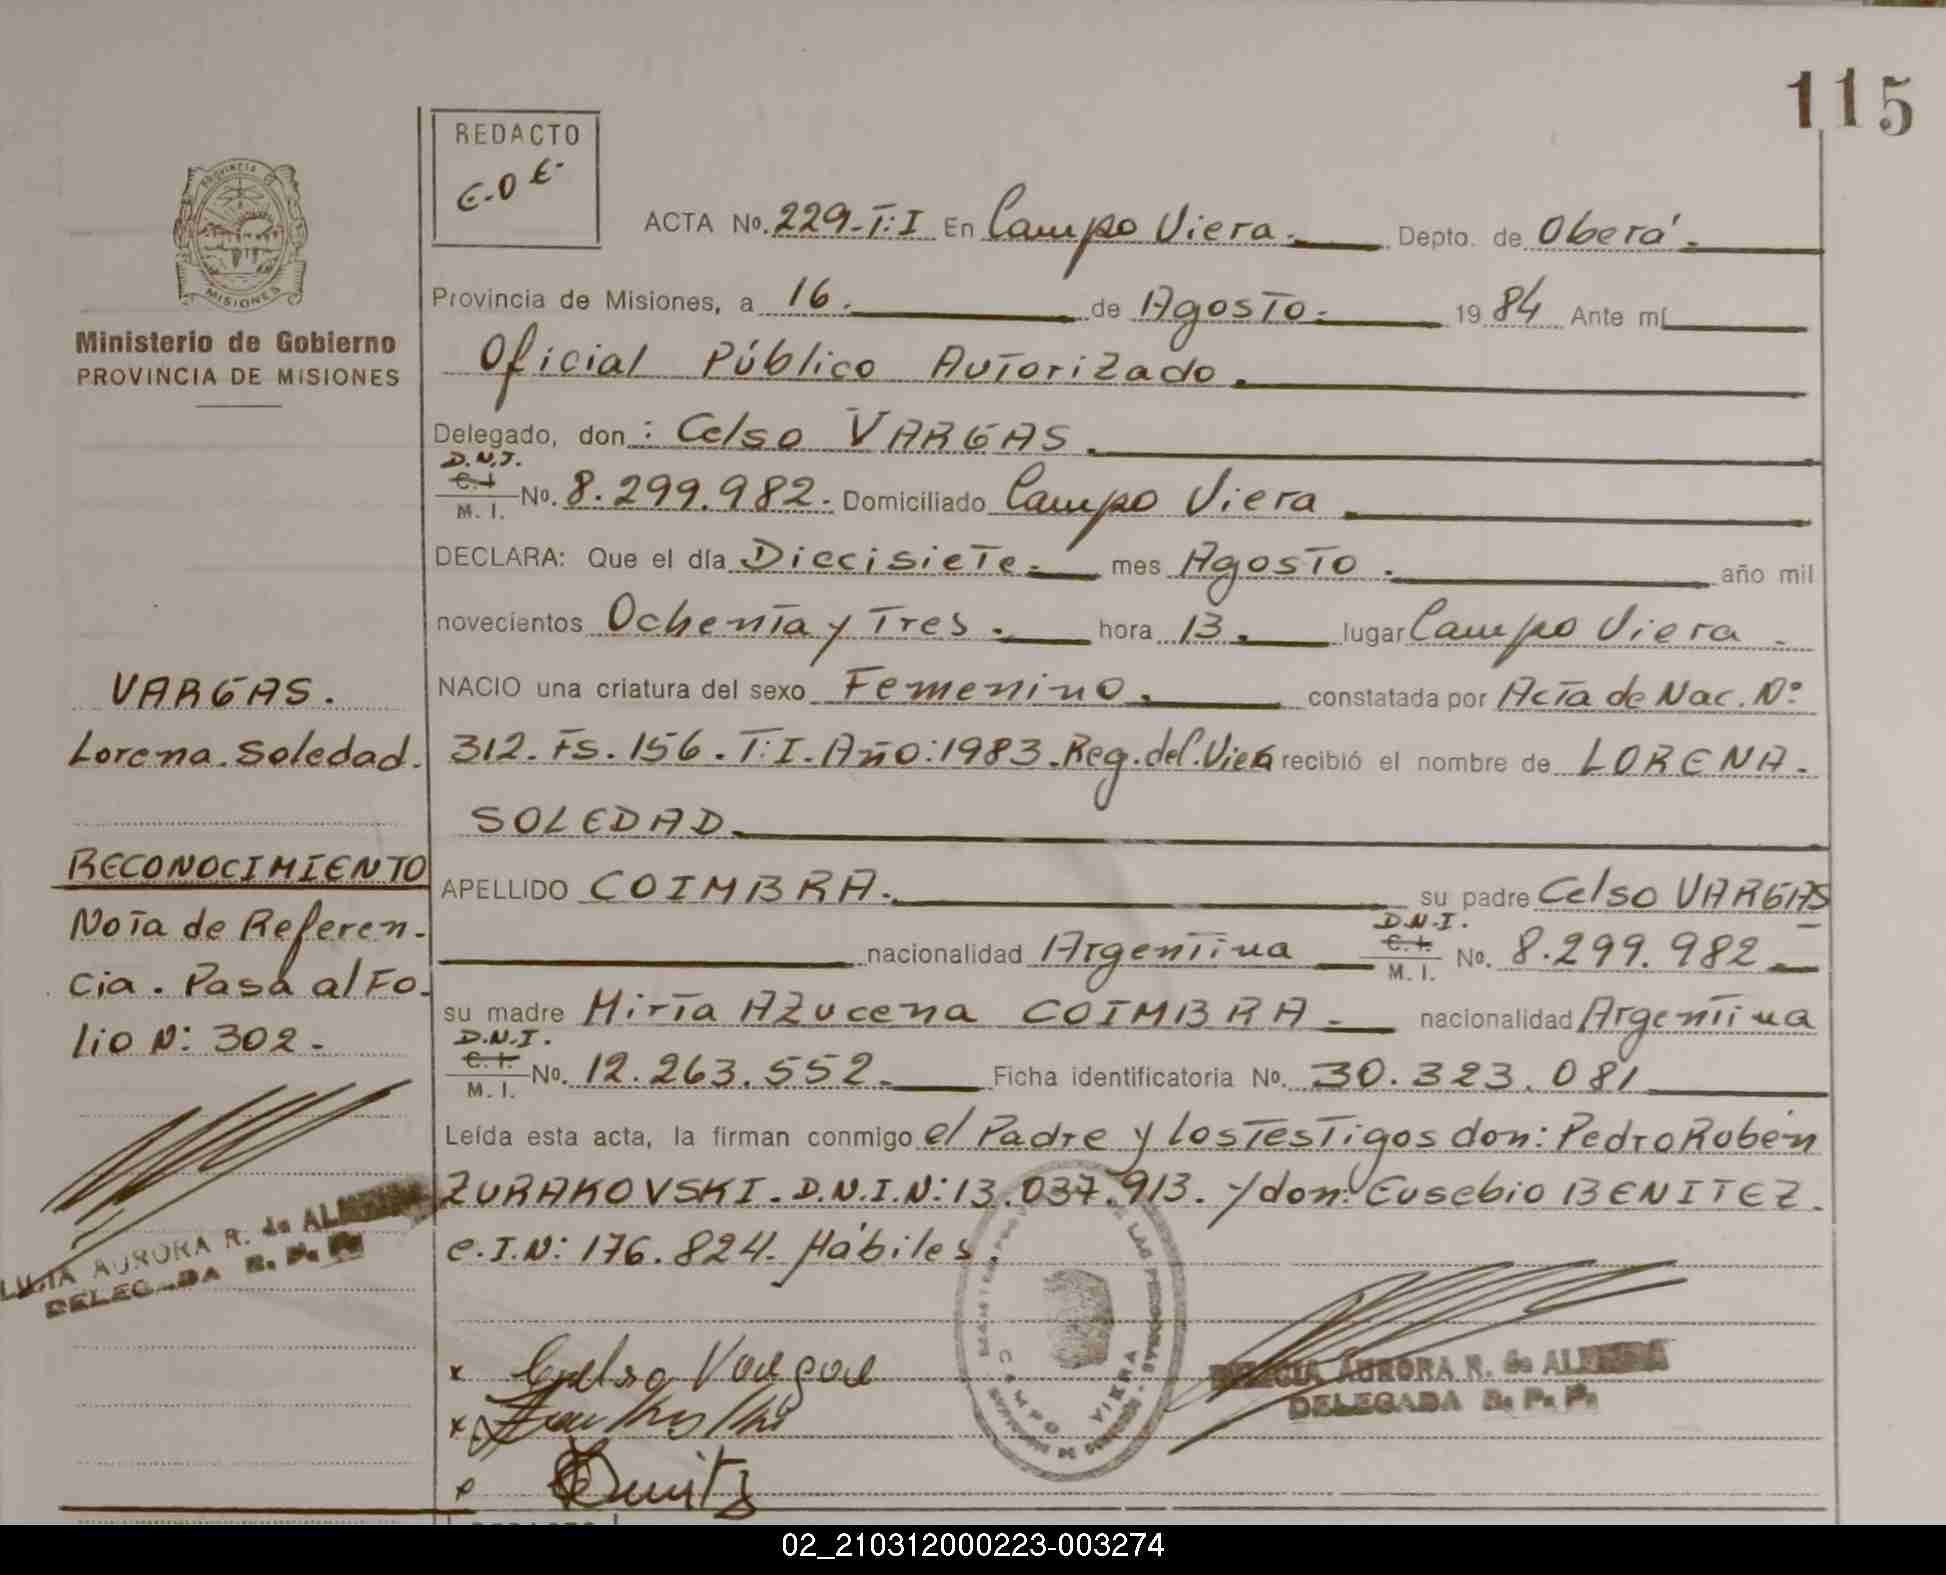 115
REDACTO
E.O E.
PROVINCIA DE
MISIONES
Ministerio de Gobierno
PROVINCIA DE MISIONES
ACTA No. 229-T:I En Campo Viera. Depto. de Oberá.
Provincia de Misiones, a 16. de Agosto. 1984 Ante mí
Oficial Público Autorizado.
Delegado, don: Celso VARGAS.
D.N.I.
C.I. M. I. No. 8.299.982. Domiciliado Campo Viera
DECLARA: Que el día Diecisiete. mes Agosto. año mil
novecientos Ochenta y Tres. hora 13. lugar Campo Viera.
NACIO una criatura del sexo Femenino. constatada por Acta de Nac. Nº
312. Fs. 156. T:I. Año:1983. Reg. del. Viera recibió el nombre de LORENA.
SOLEDAD.
APELLIDO COIMBRA. su padre Celso VARGAS
D.N.I.
nacionalidad Argentina C.I. M. I. No. 8.299.982.
su madre Mirta AZucena COIMBRA. nacionalidad Argentina
D.N.I.
C.I. M. I. No. 12.263.552. Ficha identificatoria No. 30.323.081
Leída esta acta, la firman conmigo el Padre y los Testigos don: Pedro Rubén
ZURAKOVSKI. D.N.I.N: 13.037.913. y don: Eusebio BENITEZ.
C.I.N: 176.824. Hábiles.
VARGAS.
Lorena. Soledad.
RECONOCIMIENTO
Nota de Referen-
cia. Pasa al Fo-
lio N: 302.
AURORA R. de
DELEGADA R. P. P.
x Celso Vargas
x
x Benitz
DE LAS PERSONAS
CAMPO VIERA
AURORA R. de
DELEGADA R. P. P.
02_210312000223-003274